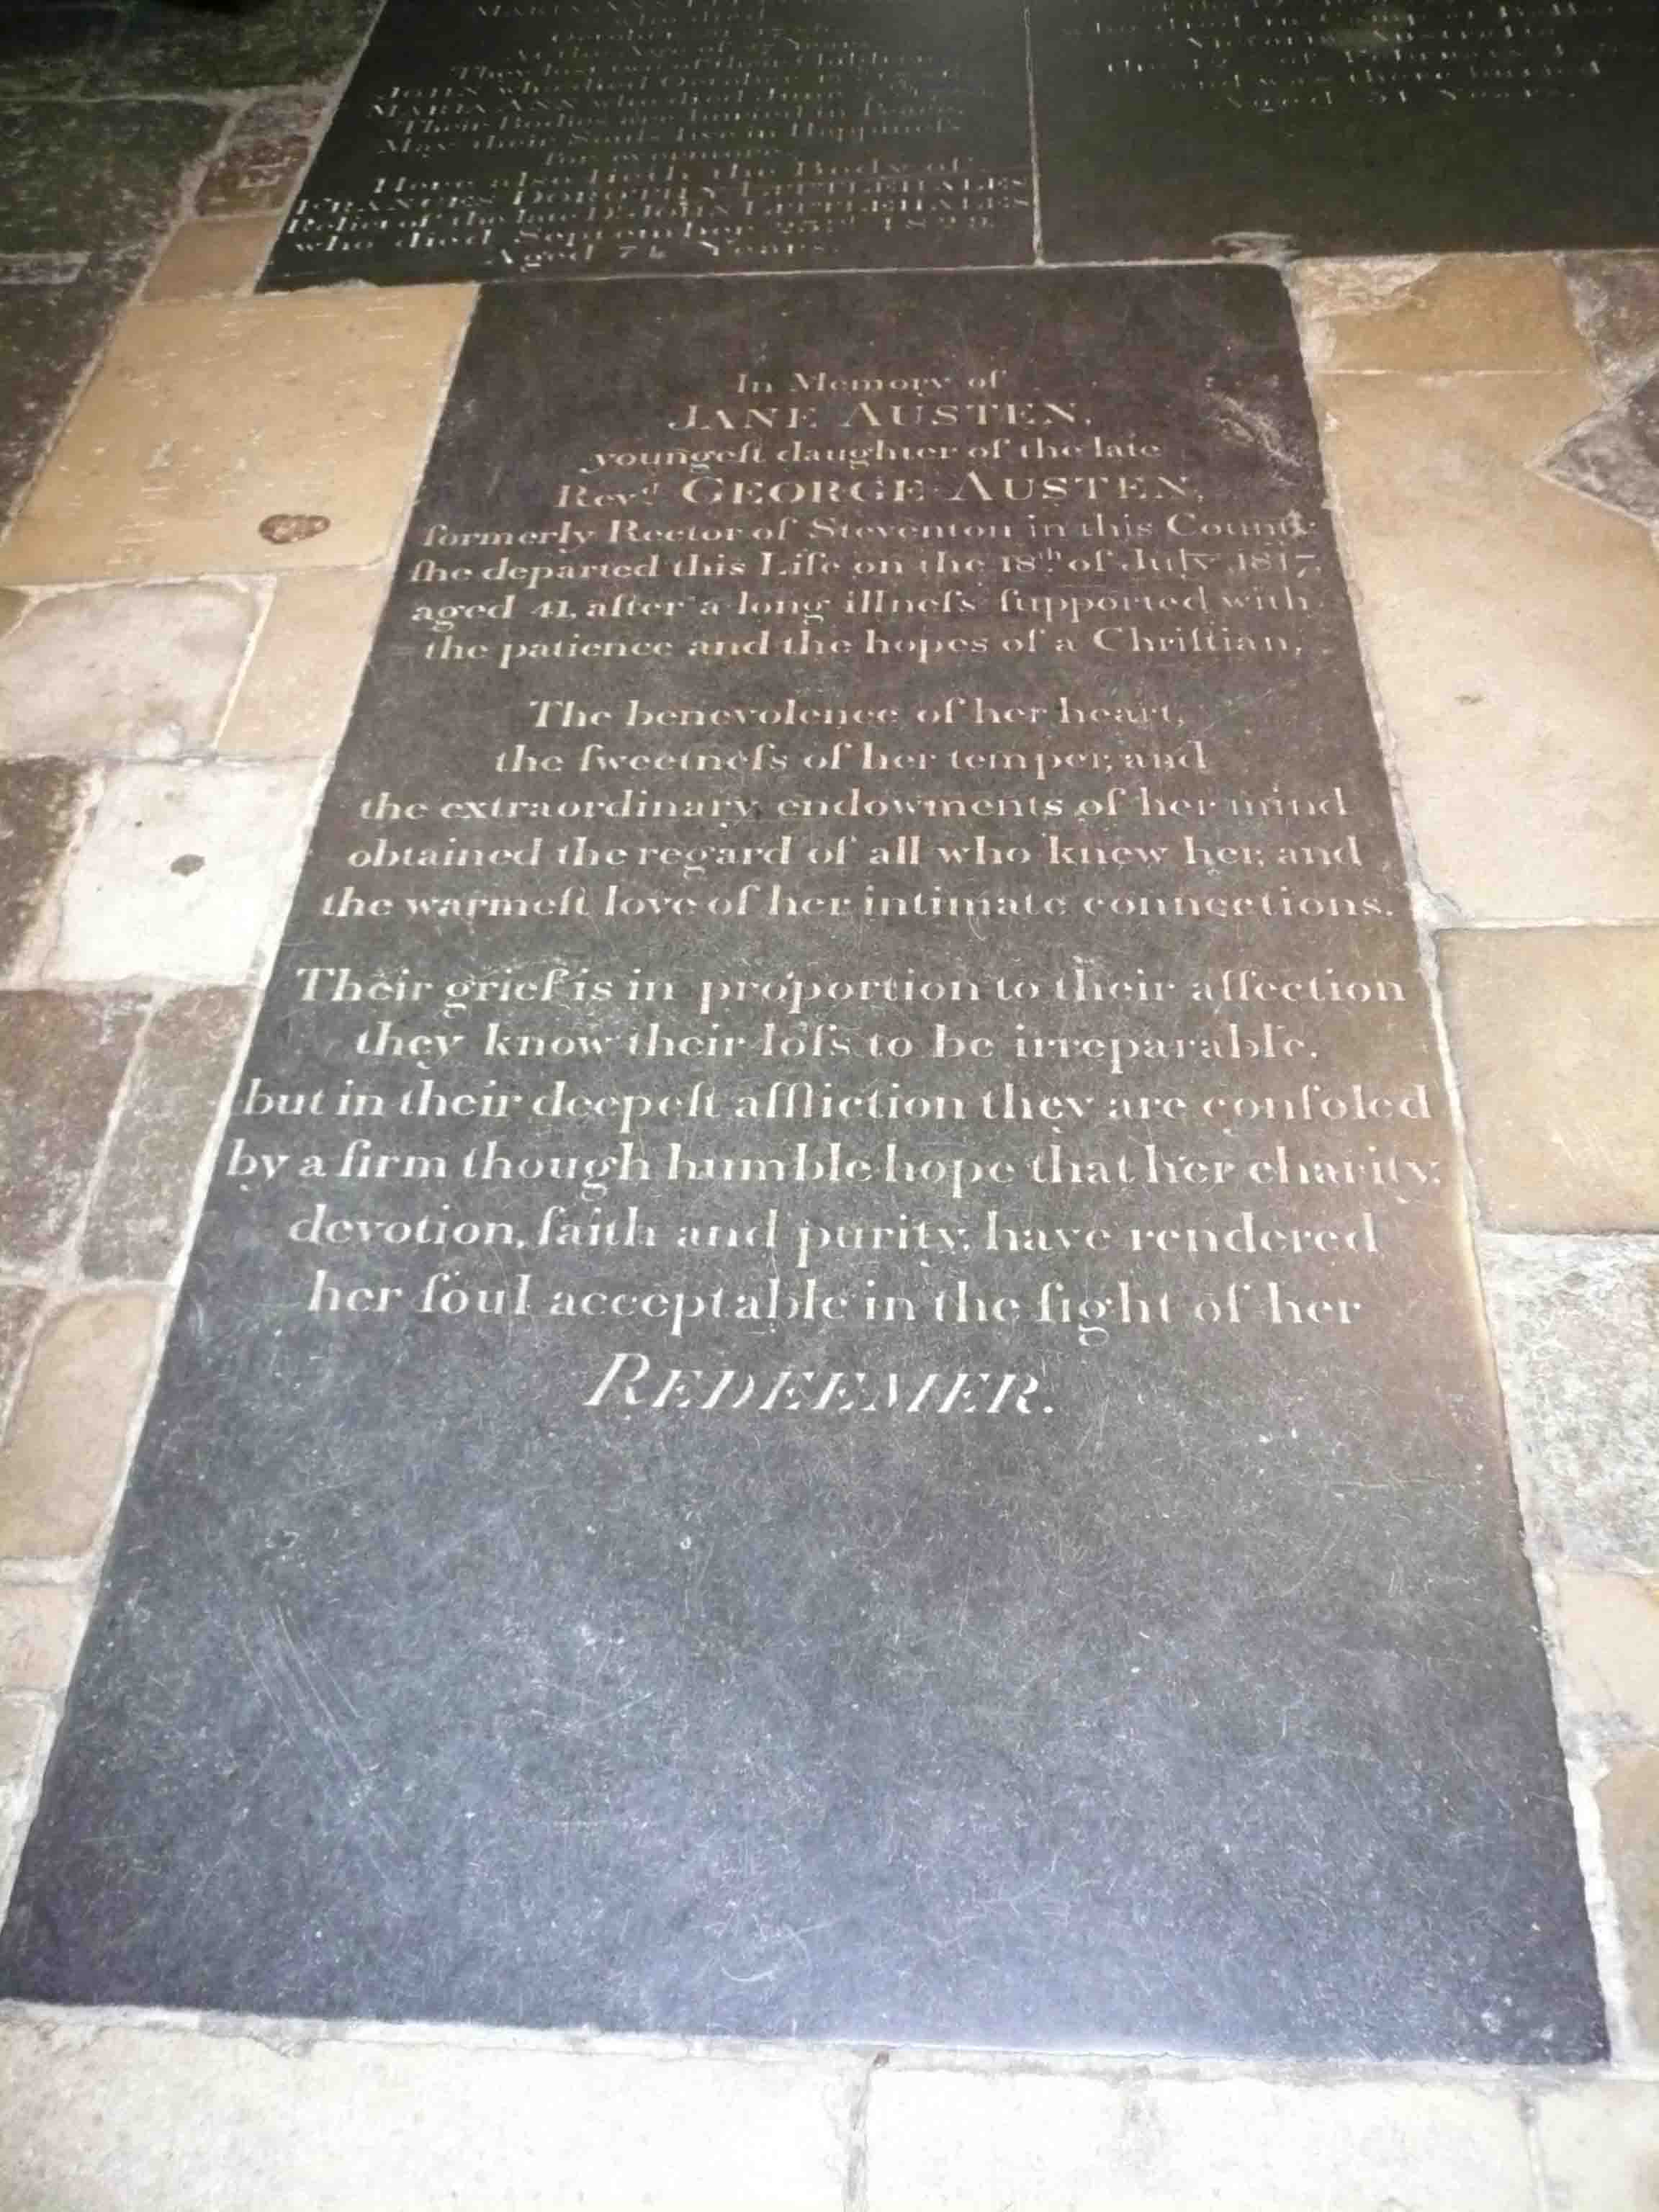 who died
October 17
At the Age of 47 Years
They lost two of their Children
JOHN who died October
MARIA ANN who died June
Their Bodies are buried in
May their Souls live in Happineſs
For evermore
Here also lieth the Body of
FRANCES DOROTHY LITTLEHALES
Relict of the late Dr JOHN LITTLEHALES
who died September 23rd 1822
Aged 74 Years.
Victoria Australia
the 12th of February
and was there buried
Aged 51 Years
In Memory of
JANE AUSTEN,
youngeſt daughter of the late
Revd. GEORGE AUSTEN,
formerly Rector of Steventon in this County
ſhe departed this Life on the 18th of July 1817,
aged 41, after a long illneſs ſupported with
the patience and the hopes of a Chriſtian,
The benevolence of her heart,
the ſweetneſs of her temper, and
the extraordinary endowments of her mind
obtained the regard of all who knew her, and
the warmeſt love of her intimate connections.
Their grief is in proportion to their affection
they know their loſs to be irreparable,
but in their deepeſt affliction they are conſoled
by a firm though humble hope that her charity,
devotion, faith and purity, have rendered
her ſoul acceptable in the ſight of her
REDEEMER.